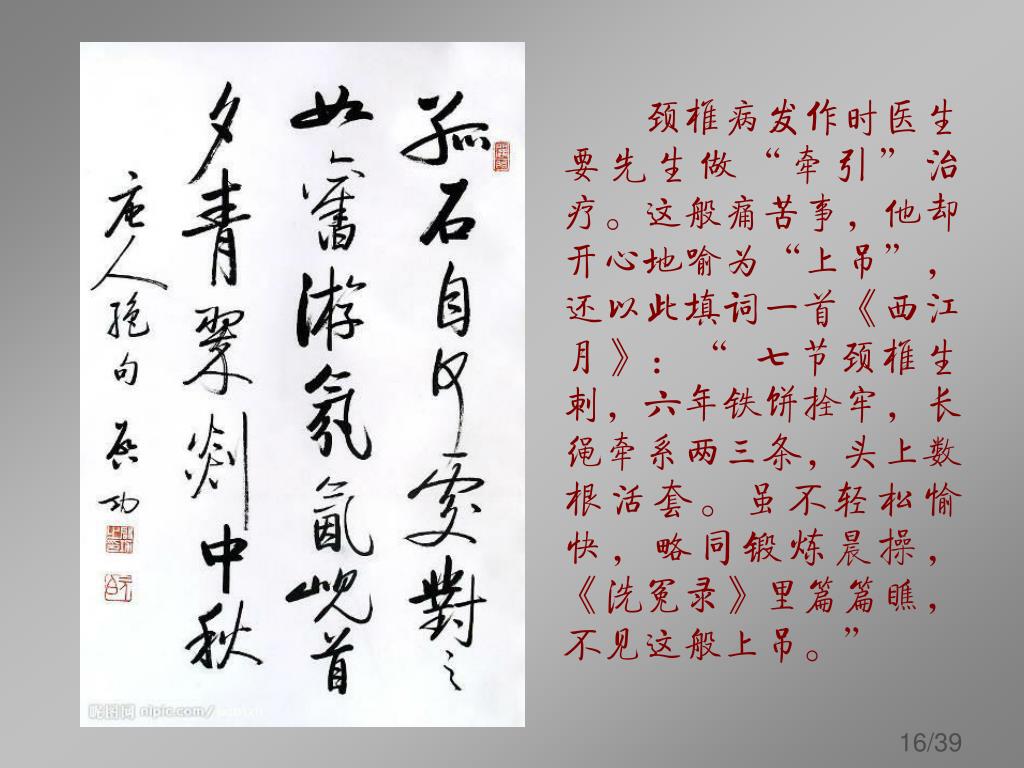 孤石自何處對之
如舊游氛氳峴首
夕青翠剡中秋
唐人絕句 启功
昵图网 nipic.com/
颈椎病发作时医生
要先生做“牵引”治
疗。这般痛苦事，他却
开心地喻为“上吊”，
还以此填词一首《西江
月》：“ 七节颈椎生
刺，六年铁饼拴牢，长
绳牵系两三条，头上数
根活套。虽不轻松愉
快，略同锻炼晨操，
《洗冤录》里篇篇瞧，
不见这般上吊。”
16/39